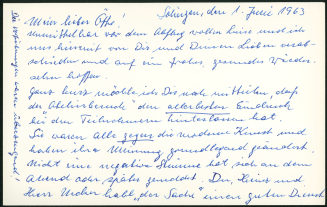 Solingen, den 1. Juni 1963
Mein lieber Otto!
Unmittelbar vor dem Abflug wollen Luise und ich
uns hiermit von Dir und Deinen Lieben verab-
schieden und auf ein frohes, gesundes Wieder-
sehen hoffen.
Ganz kurz möchte ich Dir noch mitteilen, daß
der Atelierbesuch den allerbesten Eindruck
bei den Teilnehmern hinterlassen hat.
Sie waren alle gegen die moderne Kunst und
haben ihre Meinung grundlegend geändert.
Nicht eine negative Stimme hat sich an dem
Abend oder später gemeldet. Du, Heinz und
Herr habt „der Sache" einen guten Dienst